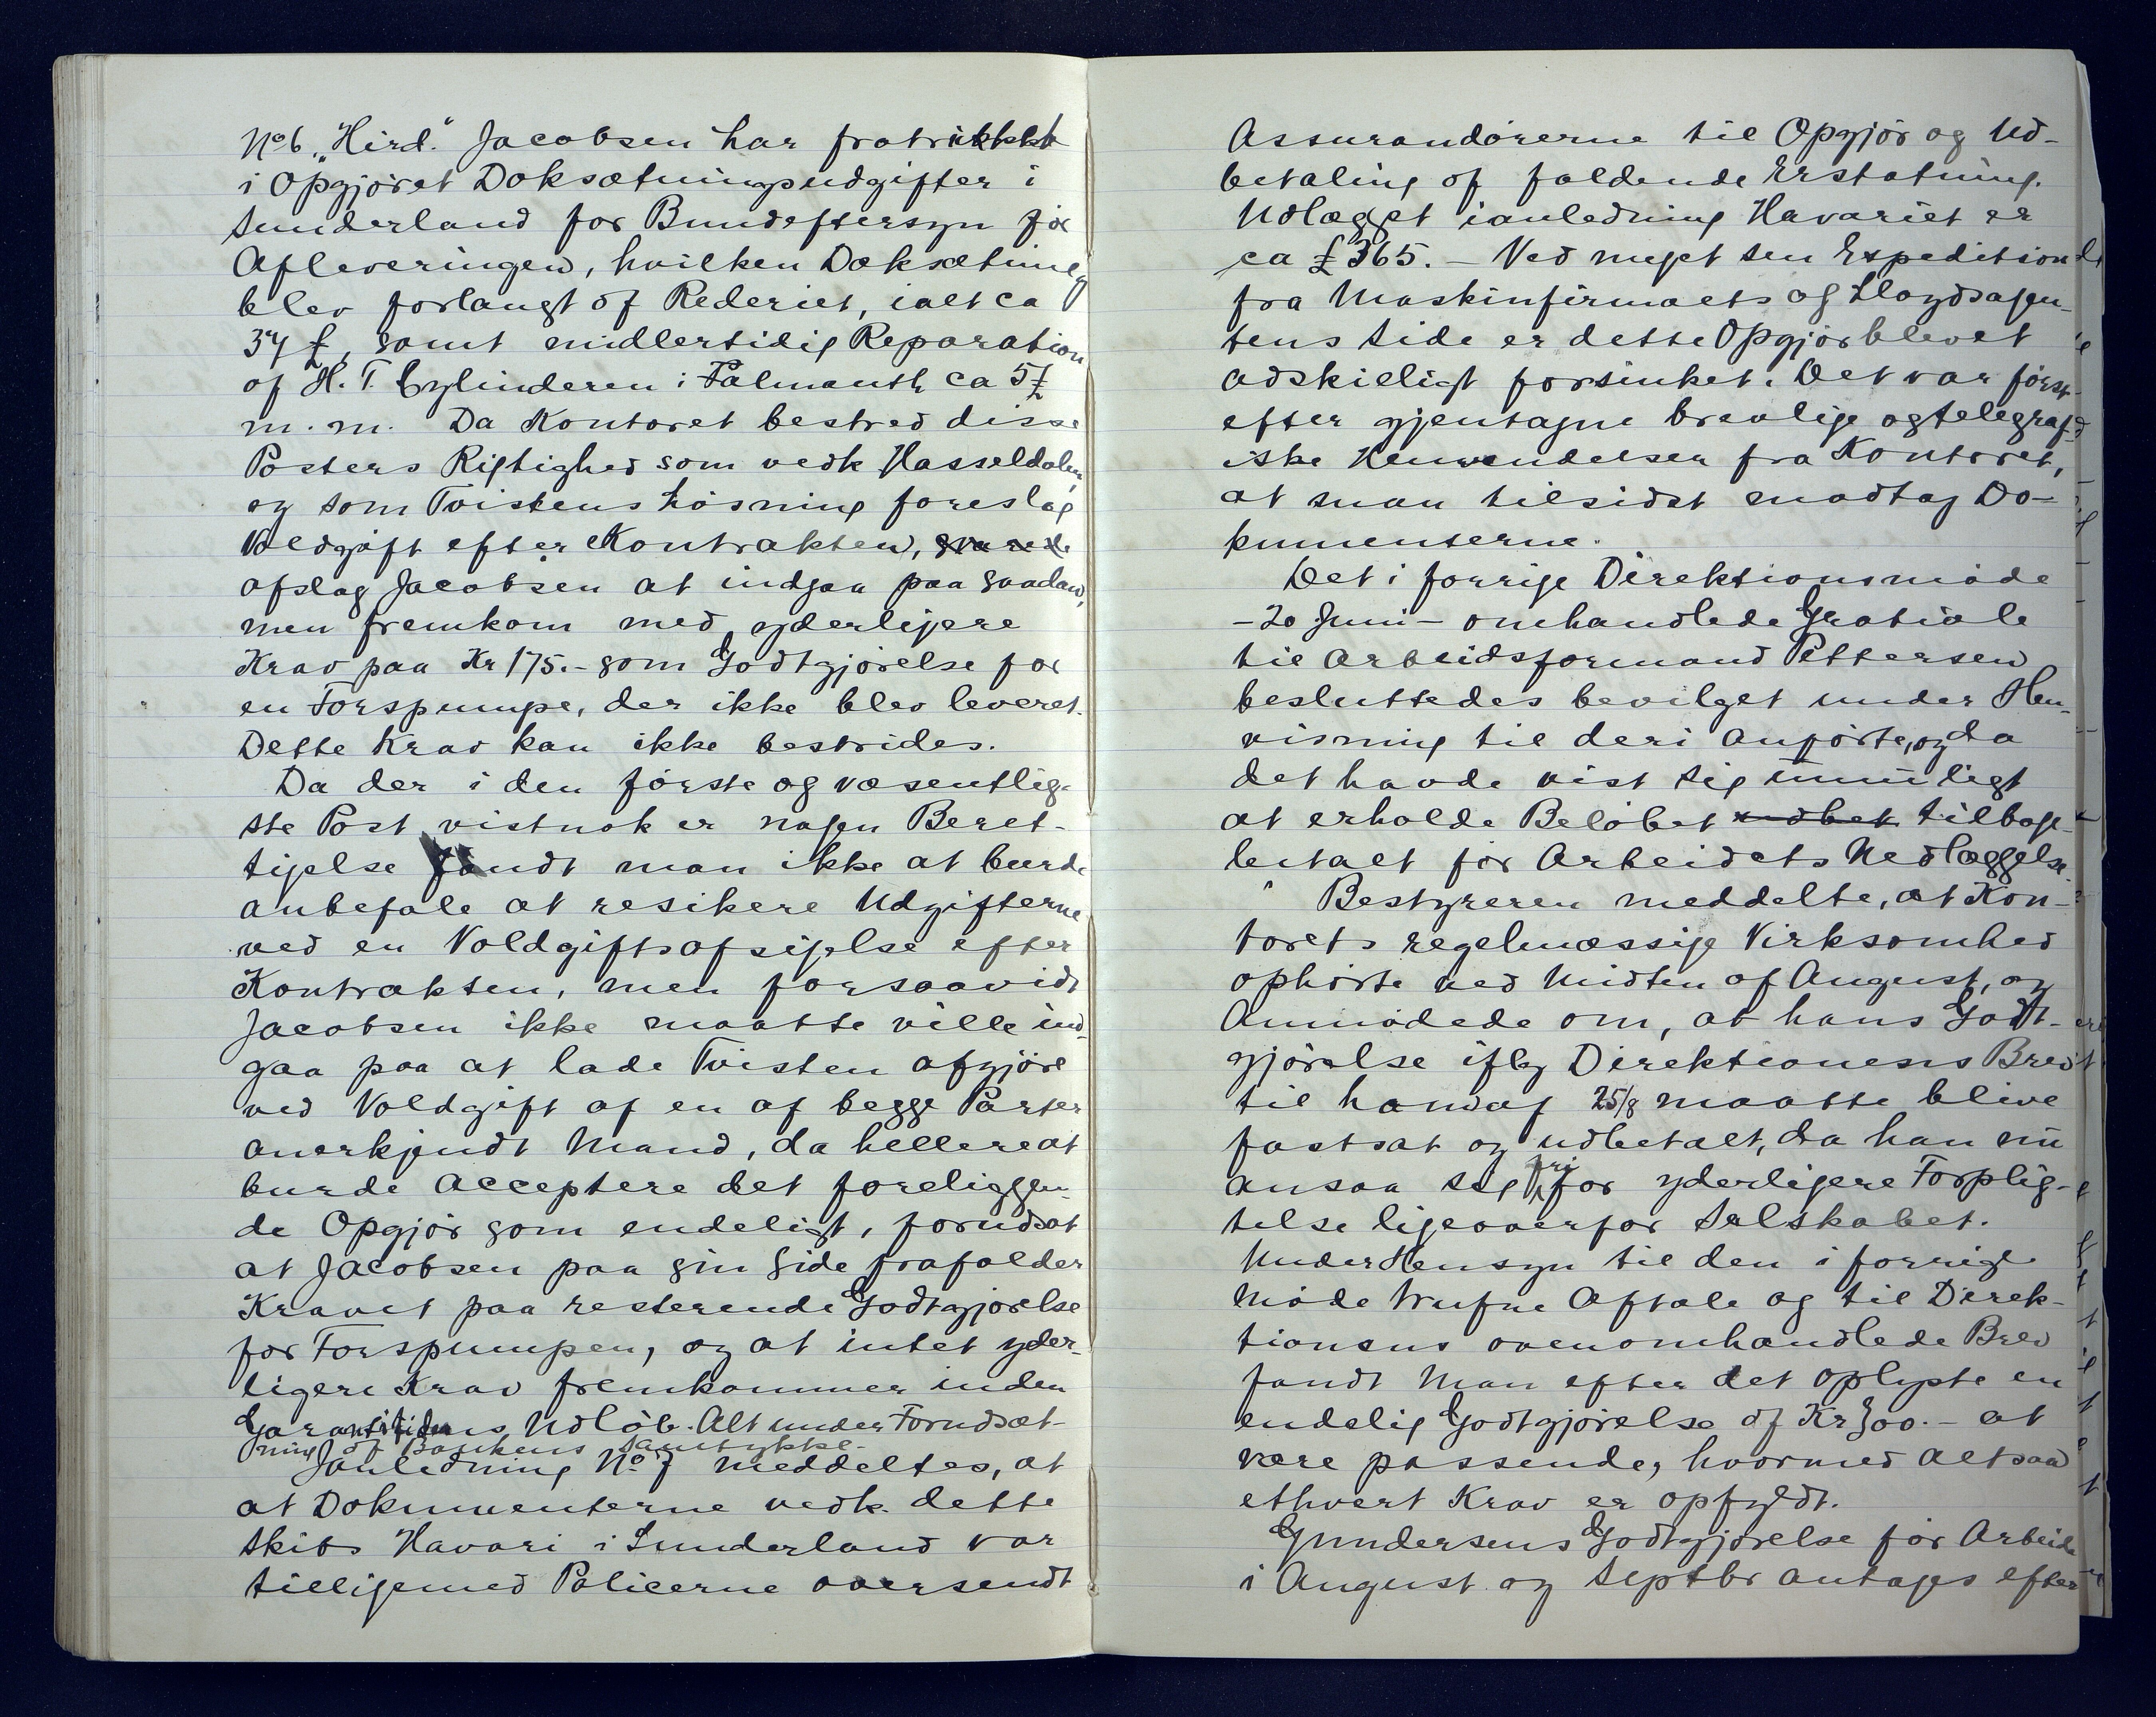 No 6 „Hird." Jacobsen har fratrukket
i Opgjöret Doksætningsudgifter i
Sunderland for Bundeftersyn för
Afleveringen, hvilken Doksætning
blev forlangt af Rederiet, ialt ca
34 £, samt midlertidig Reparation
af H. T. Cylinderen i Falmouth ca 5 £
m. m. Da Kontoret bestred disse
Posters Rigtighed som vedk Hasseldalen
og som Tvistens Lösning foreslog
Voldgift efter Kontrakten,
afslog Jacobsen at indgaa paa saadan,
men fremkom med yderligere
Krav paa Kr 175.- som Godtgjörelse for
en Forspumpe, der ikke blev leveret.
Dette Krav kan ikke bestrides.
Da der i den förste og væsentlig-
ste Post vistnok er nogen Beret-
tigelse fandt man ikke at burde
anbefale at resikere Udgifterne
ved en Voldgiftsafsigelse efter
Kontrakten, men forsaavidt
Jacobsen ikke maatte ville ind-
gaa paa at lade Tvisten afgjöre
ved Voldgift af en af begge Parter
anerkjendt Mand, da hellere at
burde acceptere det foreliggen-
de Opgjör som endeligt, forudsat
at Jacobsen paa sin Side frafalder
Kravet paa resterende Godtgjörelse
for Forspumpen, og at intet yder-
ligere Krav fremkommer inden
Garantitidens Udlöb. Alt under Forudsæt-
ning af Bankens Samtykke.
Ianledning No 7 meddeltes, at
at Dokumenterne vedk. dette
Skibs Havari i Sunderland var
tilligemed Policerne oversendt
Assurandörerne til Opgjör og Ud-
betaling af faldende Erstatning.
Udlægget ianledning Havariet er
ca £ 365. – Ved meget sen Expedition
fra Maskinfirmaets og Lloydsagen-
tens Side er dette Opgjör blevet
adskilligt forsinket. Det var först
efter gjentagne brevlige og telegraf-
iske Henvendelser fra Kontoret,
at man tilsidst modtog Do-
kumenterne.
Det i forrige Direktionsmöde
– 20 Juni – omhandlede Gratiale
til Arbeidsformand Pettersen
besluttedes bevilget under Hen-
visning til deri Anförte, og da
det havde vist sig umuligt
at erholde Belöbet udbet tilbage-
betalt för Arbeidets Nedlæggelse.
Bestyreren meddelte, at Kon-
torets regelmæssige Virksomhed
ophörte ved Midten af August, og
Anmodede om, at hans Godt-
gjörelse iflg Direktionens Brev
til ham af 25/8 maatte blive
fastsat og udbetalt, da han nu
ansaa sig fri for yderligere Forplig-
telse ligeoverfor Selskabet.
Under Hensyn til den i forrige
Möde trufne Aftale og til Direk-
tionens ovenomhandlede Brev
fandt Man efter det oplyste en
endelig Godtgjörelse af Kr 300.– at
være passende, hvormed altsaa
ethvert Krav er opfyldt.
Gundersens Godtgjörelse for Arbeide
i August og Septbr antages efter